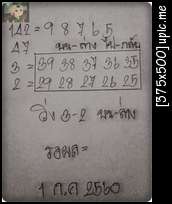 142 = 9 8 7 6 5
47 บน-ล่าง ไป-กลับ
3 = 39 38 37 36 35
2 = 29 28 27 26 25
วิ่ง 3-2 บน-ล่าง
รอผล=
1 ก.ค 2560
[375x500] upic.me